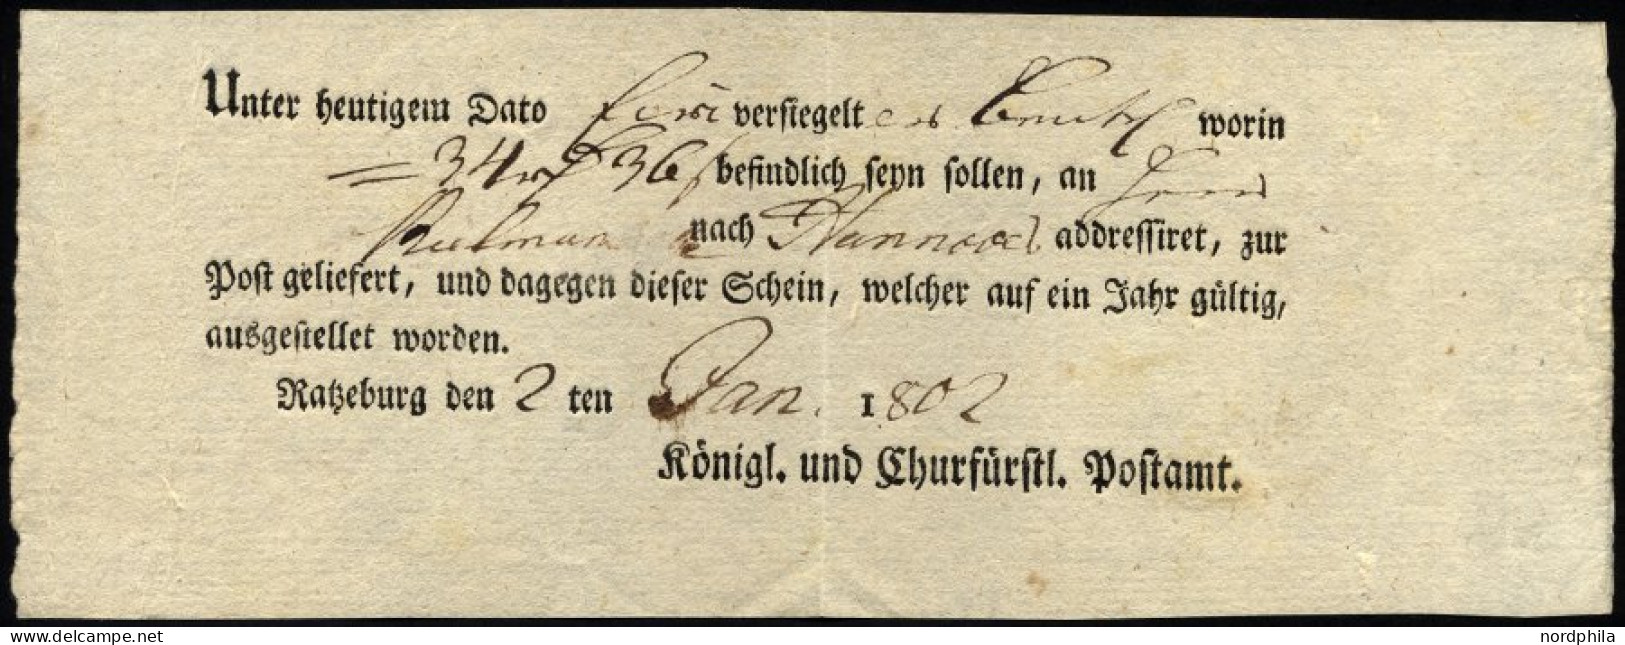 Unter heutigem Dato ein versiegeltes Beutel worin
= 34 36 befindlich seyn sollen, an Herrn
nach Hannover addressiret, zur
Post geliefert, und dagegen dieser Schein, welcher auf ein Jahr gültig,
ausgestellet worden.
Ratzeburg den 2 ten Jan. 1802
Königl. und Churfürstl. Postamt.
delcampe.net
nordphila